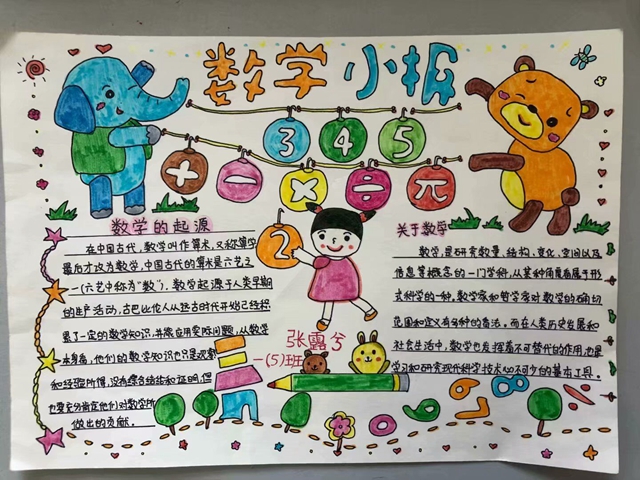 数学小报
3 4 5
+ - × ÷ 元
数学的起源
在中国古代,数学叫作算术,又称算学
最后才改为数学,中国古代的算术是六艺之
一(六艺中称为“数”),数学起源于人类早期
的生产活动,古巴比伦人从远古时代开始已经积
累了一定的数学知识,并能应用实际问题,从数学
本身看,他们的数学知识也只是观察
和经验所得,没有综合结论和证明,但
也要充分肯定他们对数学所
做出的贡献。
2
张露兮
一(5)班
关于数学
数学,是研究数量、结构、变化、空间以及
信息等概念的一门学科,从某种角度看属于形
式科学的一种,数学家和哲学家对数学的确切
范围和定义有各种的看法。而在人类历史发展和
社会生活中,数学也发挥着不可替代的作用,也是
学习和研究现代科学技术必不可少的基本工具。
0 6 9 8